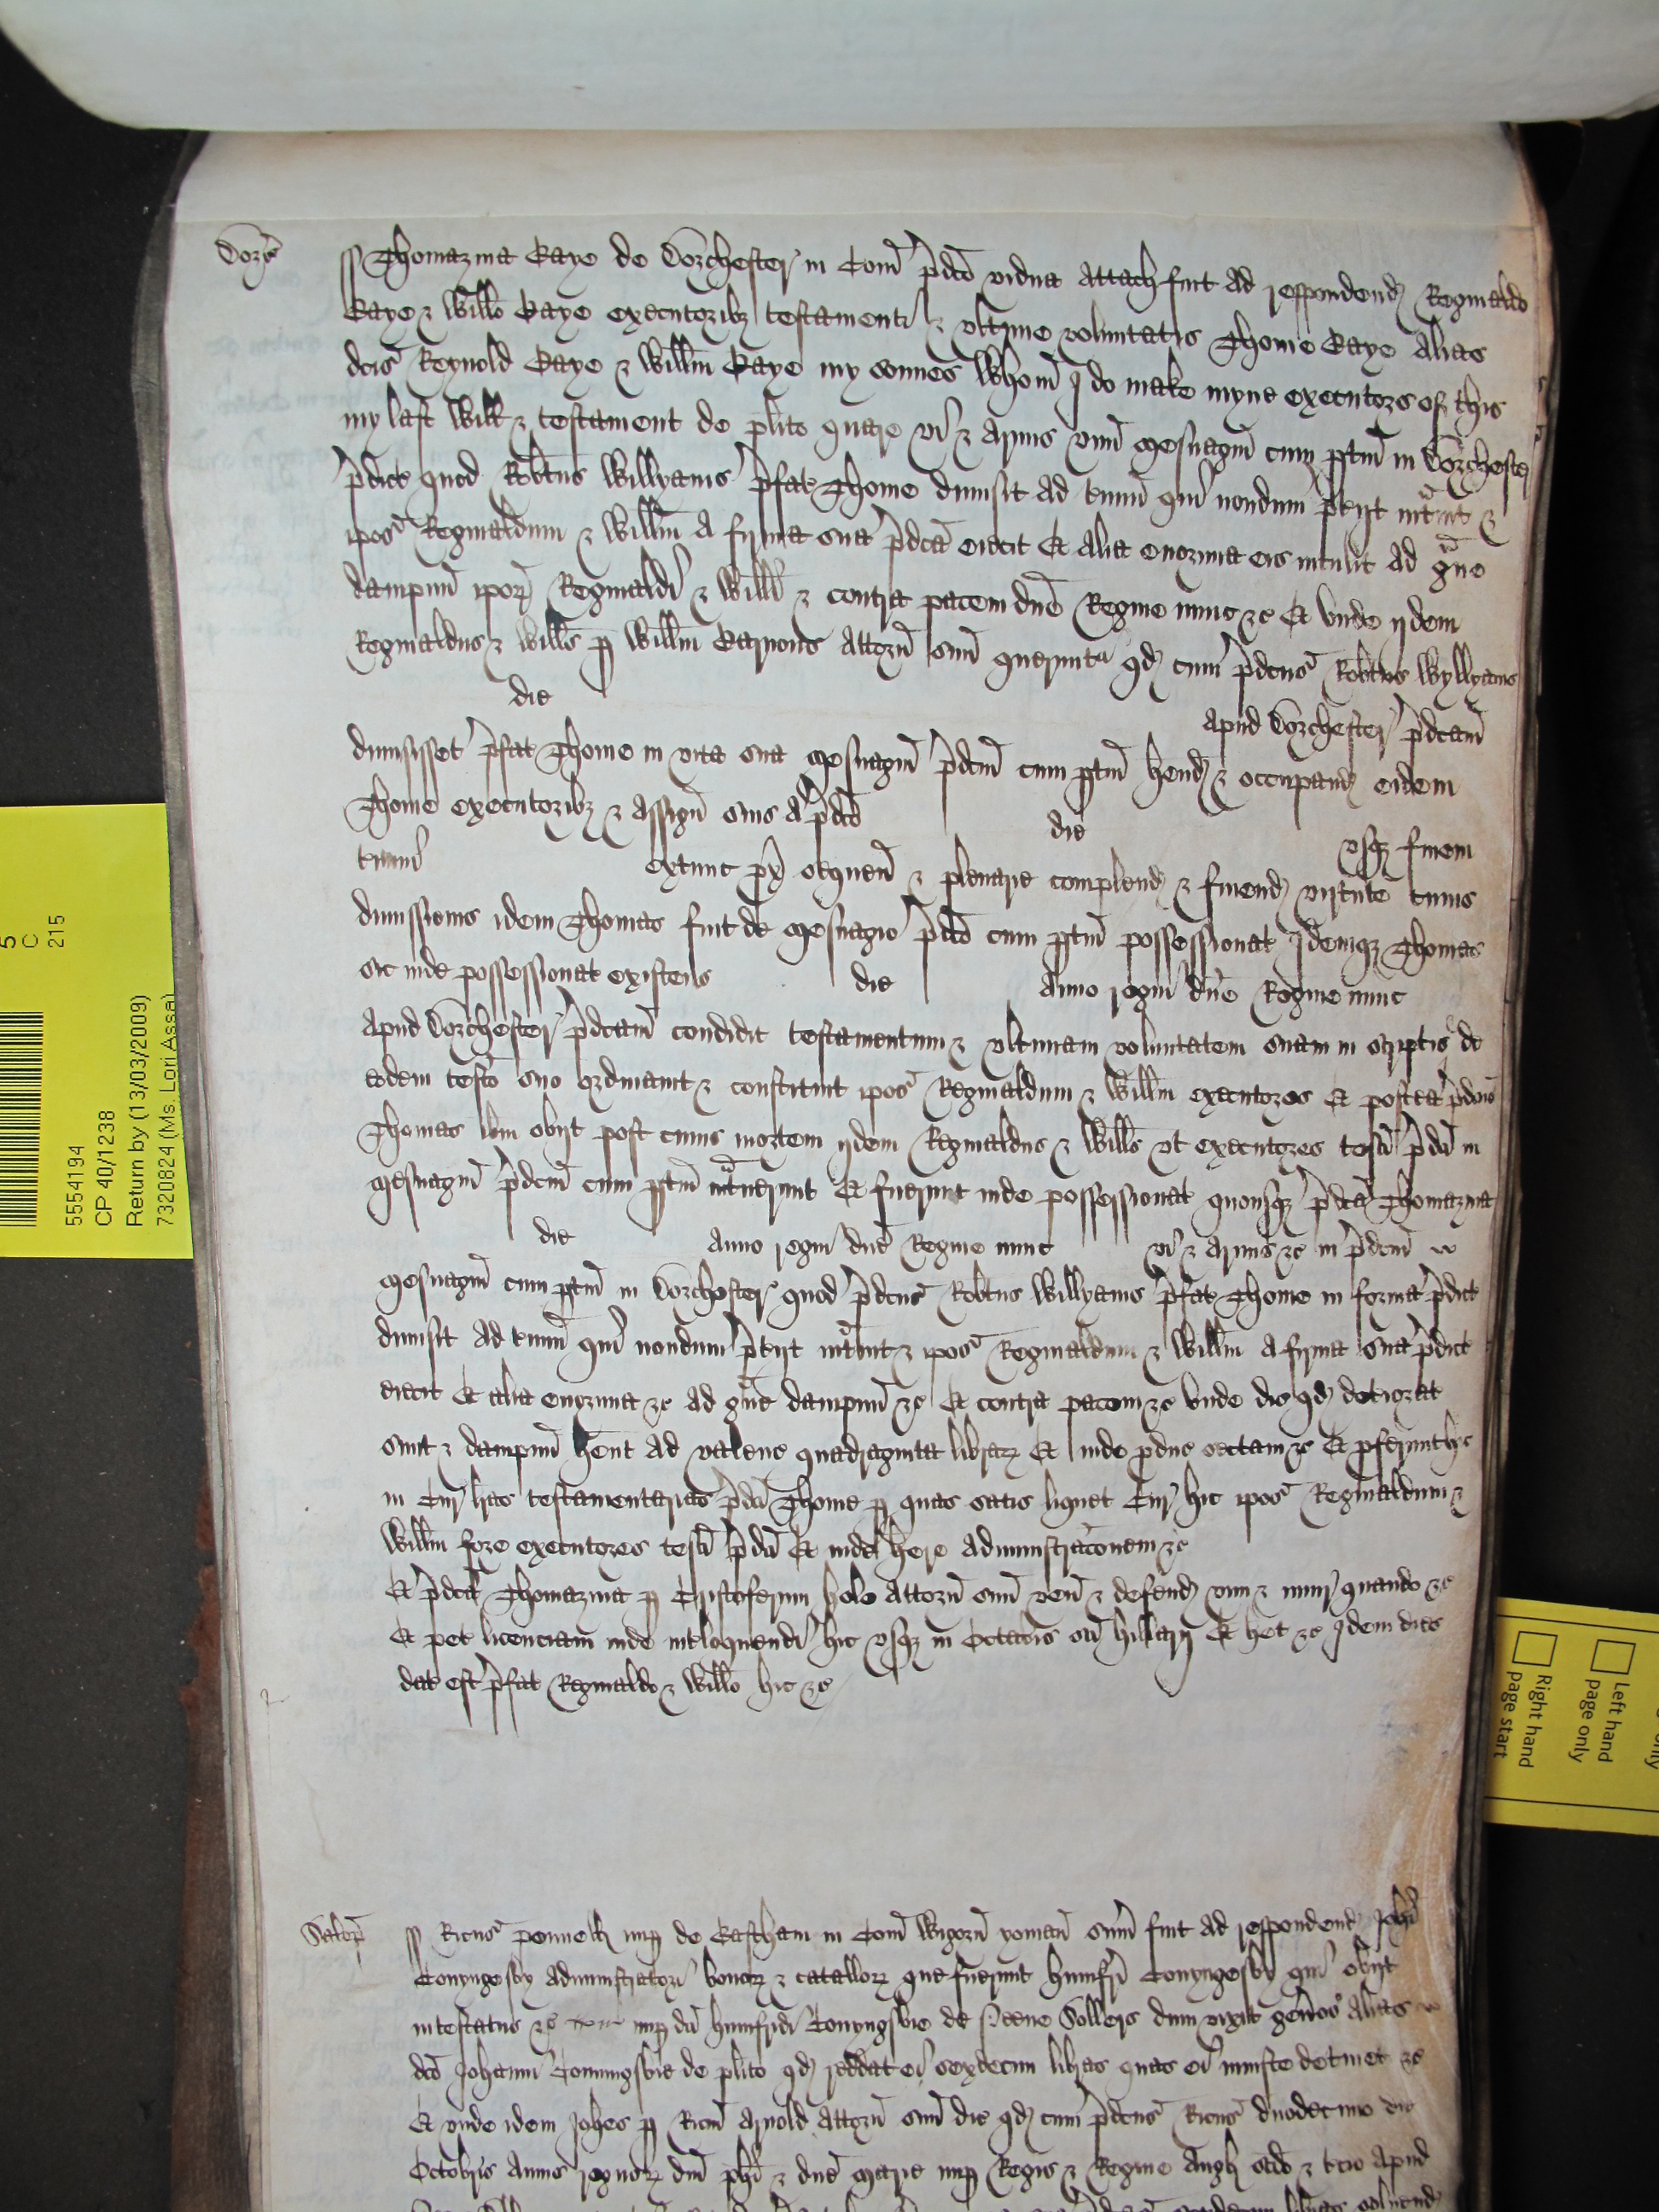 Dors
Thomazina Kaye de Dorchester in Com p̄dco vidua attach fuit ad respondend Reginaldo
Kaye & Willo Kaye executorib testamenti & ultime voluntatis Thome Kaye alias
dcis Reynold Kaye & Willm Kaye my sonnes whom I do make myne executors of this
my last Will & testament de plito quare vi & armis unu mesuagiu cum ptin in Dorchester
p̄dict quod Robtus Willyams p̄fat Thome dimisit ad tminu qui nondum p̄teriit intravit &
ipos Reginaldum & Willm a firma sua p̄dca eiecit Et alia enormia eis intulit ad gve
dampnu ipor Reginaldi & Willi & contra pacem dne Regine nunc &c Et unde iidem
Reginaldus & Wills p Willm attorn suu querunt qd cum p̄dcus Robtus Wyllyams
die apud Dorchester p̄dcam
dimisisset p̄fat Thome in vita sua mesuagiu p̄dcm cum ptin hend & occupand eidem
Thome executorib & assign suis a p̄dco die usq finem
tmini extunc px sequen & plenarie complend & finiend virtute cuius
dimissionis idem Thomas fuit de mesuagio p̄dco cum ptin possessionat Idemq Thomas
sic inde possessionat existens die Anno regni dne Regine nunc
apud Dorchester p̄dcam condidit testamentum & ultimam voluntatem suam in scriptis de
eodem testo suo ordinavit & constituit ipos Reginaldum & Willm executores Et postea p̄dcus
Thomas ibm obiit post cuius mortem iidem Reginaldus & Wills ut executores testi p̄dci in
mesuagiu p̄dcm cum ptin intraverunt Et fuerunt inde possessionat quousq p̄dca Thomazina
die Anno regni dne Regine nunc vi & armis &c in p̄dcm
mesuagiu cum ptin in Dorchester quod p̄dcus Robtus Willyams p̄fat Thome in forma p̄dict
dimisit ad tminu qui nondum p̄teriit intravit & ipos Reginaldum & Willm a firma sua p̄dict
eiecit Et alia enormia &c ad gve dampnu &c Et contra pacem &c unde dic qd deteriorat
sunt & dampnu hent ad valenc quadraginta librar Et inde pduc sectam &c Et pferunt hic
in Cur lras testamentarias p̄dci Thome p quas satis liquet Cur hic ipos Reginaldum &
Willm fore executores testi p̄dci Et inde here administracōnem &c
Et p̄dca Thomazina p Cristoferum Hole attorn suu ven & defend vim & iniur quando &c
Et pet licenciam inde intloquendi hic usq in Octabis sci Hillarij Et het &c Idem dies
dat est p̄fat Reginaldo & Willo hic &c
Salop
Ricus nup de Eastham in Com Wigorn yoman sum fuit ad respondend Johi
Conyngesby administratori bonor & catallor que fuerunt Humfri Conyngesby qui obiit
intestatus &c nup dci Humfridi Conyngsbie de Sollers dum vixit genos alias
dco Johanni Conningsbie de plito qd reddat ei sexdecim libras quas ei iniuste detinet &c
Et unde idem Johes p Ricm Arnold attorn suu dic qd cum p̄dcus Ricus duodecimo die
Octobris Annis regnor dni phi & dne marie nup Regis & Regine Angl scdo & tcio apud
5
C
215
55554194
CP 40/1238
Return by (13/03/2009)
7320824 (Ms. Lori Assa)
Left hand
page only
Right hand
page start